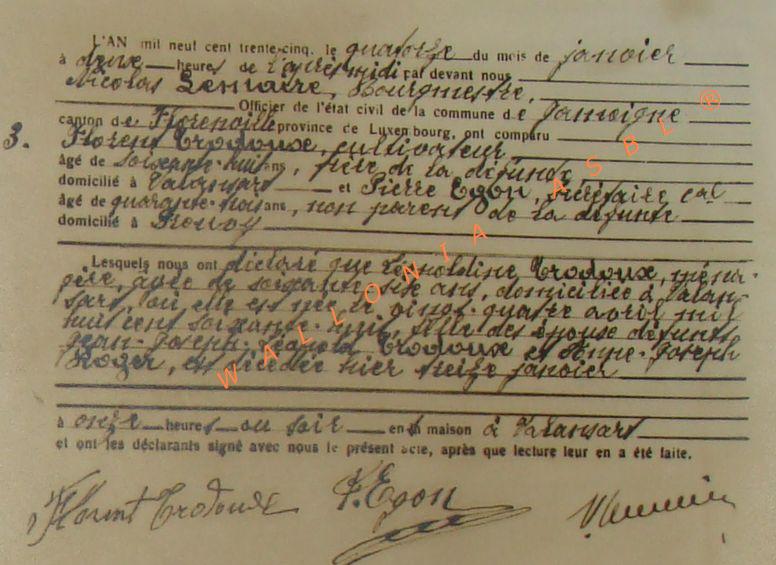 L'AN mil neuf cent trente-cinq, le quatorze du mois de janvier
à deux heures de l'après-midi par devant nous
Nicolas Lemaire, Bourgmestre,
Officier de l'état civil de la commune de Jamoigne
canton de Florenville province de Luxembourg, ont comparu
3. Florent Trodoux, cultivateur
âgé de soixante-huit ans, frère de la défunte,
domicilié à Valansart et Pierre Egon, secrétaire cal
âgé de quarante-trois ans, non parent de la défunte
domicilié à Prouvy
Lesquels nous ont déclaré que Léopoldine Trodoux, ména-
gère, âgée de soixante-six ans, domiciliée à Valan-
sart, où elle est née le vingt-quatre avril mil
huit cent soixante-huit, fille des époux défunts
Jean-Joseph-Léopold Trodoux et Anne-Joseph
Roger, est décédée hier treize janvier
à onze heures du soir en sa maison à Valansart
et ont les déclarants signé avec nous le présent acte, après que lecture leur en a été faite.
Florent Trodoux P. Egon
WALLONIA ASBL ®